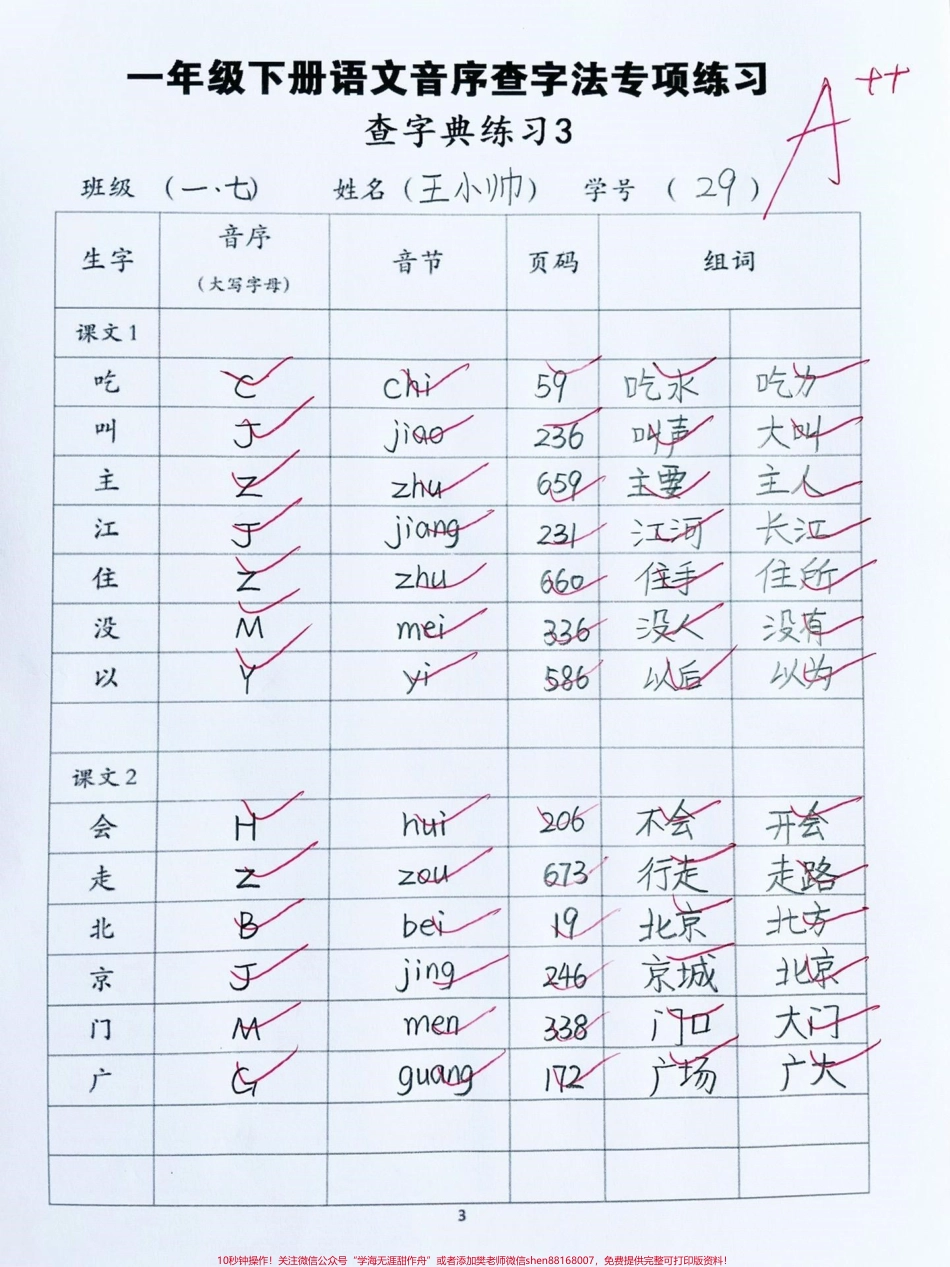 一年级下册语文音序查字法专项练习
A++
查字典练习3
班级 (一、七) 姓名 (王小帅) 学号 (29)
生字 音序 (大写字母) 音节 页码 组词
课文1
吃 C chi 59 吃水 吃力
叫 J jiao 236 叫声 大叫
主 Z zhu 659 主要 主人
江 J jiang 231 江河 长江
住 Z zhu 660 住手 住所
没 M mei 336 没人 没有
以 Y yi 586 以后 以为
课文2
会 H hui 206 不会 开会
走 Z zou 673 行走 走路
北 B bei 19 北京 北方
京 J jing 246 京城 北京
门 M men 338 门口 大门
广 G guang 172 广场 广大
3
10秒钟操作！关注微信公众号“学海无涯甜作舟”或者添加樊老师微信shen88168007，免费提供完整可打印版资料！